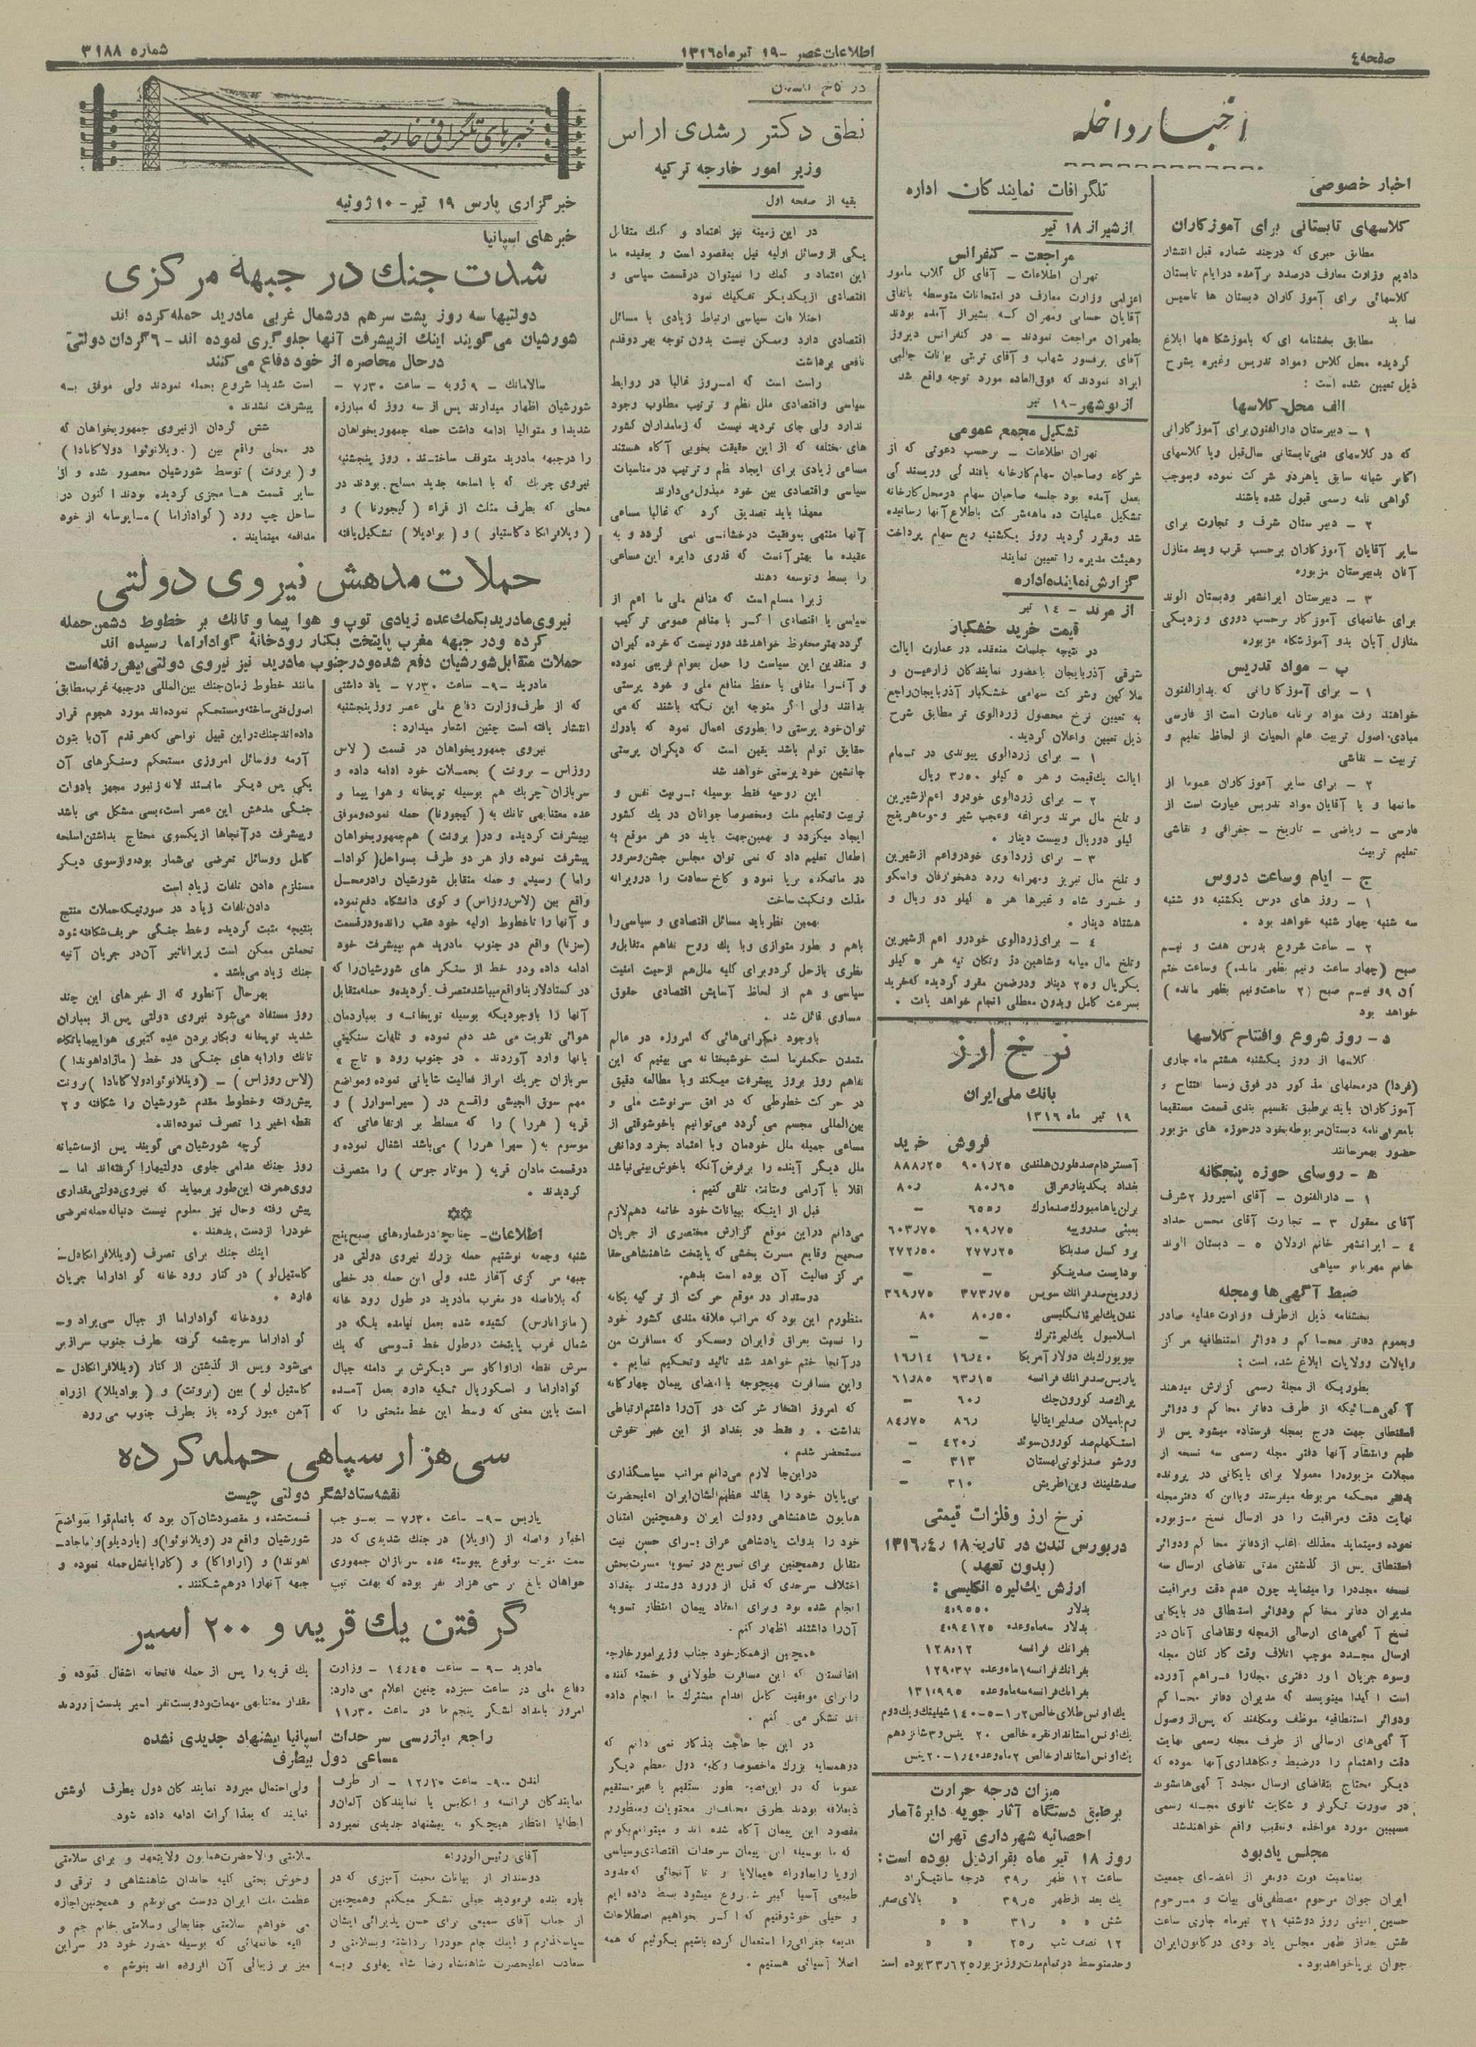 صفحه ٤
اطلاعات عصر - ١٩ تیرماه ١٣١٦
شماره ٣١٨٨
اخبار داخله
اخبار خصوصی
کلاسهای تابستانی برای آموزکاران
مطابق خبری که درچند شماره قبل انتشار
دادیم وزارت معارف درصدد برآمده درایام تابستان
کلاسهائی برای آموزکاران دبستان ها تاسیس
نماید
مطابق بخشنامه ای که باموزشکاهها ابلاغ
گردیده محل کلاس ومواد تدریس وغیره بشرح
ذیل تعیین شده است :
الف محل کلاسها
١ - دبیرستان دارالفنون برای آموزکارانی
که در کلاسهای فنی تابستانی سال قبل ویا کلاسهای
اکابر شبانه سابق یاهردو شرکت نموده وبموجب
گواهی نامه رسمی قبول شده باشند
٢ - دبیرستان شرف و تجارت برای
سایر آقایان آموزکاران برحسب قرب وبعد منازل
آنان بدبیرستان مزبوره
٣ - دبیرستان ایرانشهر ودبستان الوند
برای خانمهای آموزکار برحسب دوری و نزدیکی
منازل آنان بدو آموزشکاه مزبوره
ب - مواد تدریس
١ - برای آموزکارانی که بدارالفنون
خواهند رفت مواد برنامه عبارت است از فارسی
مبادی اصول تربیت علم الحیات از لحاظ تعلیم و
تربیت - نقاشی
٢ - برای سایر آموزکاران عموما از
خانمها و یا آقایان مواد تدریس عبارت است از
فارسی - ریاضی - تاریخ - جغرافی و نقاشی
تعلیم تربیت
ج - ایام وساعت دروس
١ - روز های درس یکشنبه دو شنبه
سه شنبه چهار شنبه خواهد بود .
٢ - ساعت شروع بدرس هفت و نیم
صبح (چهار ساعت ونیم بظهر مانده) وساعت ختم
آن ٩ و نیم صبح (٢ ساعت ونیم بظهر مانده )
خواهد بود
د - روز شروع وافتتاح کلاسها
کلاسها از روز یکشنبه هشتم ماه جاری
(فردا) درمحلهای مذکور در فوق رسما افتتاح و
آموزکاران باید برطبق تقسیم بندی قسمت مستقیما
بامعرفی نامه دبستان مربوطه بخود درحوزه های مزبور
حضور بهمرسانند
ه - روسای حوزه پنجکانه
١ - دارالفنون - آقای اسپروز ٢ شرف
آقای معقول ٣ - تجارت آقای محسن حداد
٤ - ایرانشهر خانم اردلان ٥ - دبستان الوند
خانم مهربانو سپاهی
ضبط آگهی ها ومجله
بخشنامه ذیل ازطرف وزارت عدلیه صادر
وبعموم دفاتر محاکم و دوائر استنطاقیه مرکز
وایالات وولایات ابلاغ شده است :
بطوریکه از مجلة رسمی گزارش میدهند
آگهی هائیکه از طرف دفاتر محاکم و دوائر
استنطاقی جهت درج بمجله فرستاده میشود پس از
طبع وانتشار آنها دفتر مجله رسمی سه نسخه از
مجلات مزبوره را معمولا برای بایکانی در پرونده
بدفتر محکمه مربوطه میفرستد وبااین که دفترمجله
نهایت دقت ومراقبت را در ارسال نسخ مزبوره
نموده ومینماید معذلک اغلب ازدفاتر محاکم ودوائر
استنطاقی پس از گذشتن مدتی تقاضای ارسال سه
نسخه مجددرا مینماید چون عدم دقت ومراقبت
مدیران دفاتر محاکم ودوائر استنطاق در بایکانی
نسخ آگهی های ارسالی ازمجله وتقاضای آنان در
ارسال مجدد موجب اتلاف وقت کارکنان مجله
وسوء جریان امور دفتری مجله را فراهم آورده
است اکیدا مینویسد که مدیران دفاتر محاکم
ودوائر استنطاقیه موظف ومکلفند که پس از وصول
آگهی های ارسالی از طرف مجله رسمی نهایت
دقت واهتمام را درضبط ونکاهداری آنها نموده که
دیگر محتاج بتقاضای ارسال مجدد آگهی ها نشوند
در صورت تکرار و شکایت ثانوی مجله رسمی
مسببین مورد مواخذه وتعقیب واقع خواهند شد
مجلس یادبود
بمناسبت فوت دونفر از اعضای جمعیت
ایران جوان مرحوم مصطفی قلی بیات و مرحوم
حسین امینی روز دوشنبه ٢١ تیرماه جاری ساعت
شش بعداز ظهر مجلس یادبودی درکانون ایران
جوان برپا خواهد بود .
تلگرافات نمایندکان اداره
از شیراز ١٨ تیر
مراجعت - کنفرانس
تهران اطلاعات - آقای گل گلاب مامور
اعزامی وزارت معارف در امتحانات متوسطه باتفاق
آقایان حسابی ومهران که بشیراز آمده بودند
بطهران مراجعت نمودند - در کنفرانس دیروز
آقای برفسور شهاب و آقای تربتی بیانات جالبی
ایراد نمودند که فوق العاده مورد توجه واقع شد
از نوشهر - ١٩ تیر
تشکیل مجمع عمومی
تهران اطلاعات - برحسب دعوتی که از
شرکاء وصاحبان سهام کارخانه بافندگی وریسندگی
بعمل آمده بود جلسه صاحبان سهام درمحل کارخانه
تشکیل عملیات ده ماهه شرکت باطلاع آنها رسانیده
شد ومقرر گردید روز یکشنبه ربع سهام پرداخت
وهیئت مدیره را تعیین نمایند
گزارش نماینده اداره
از مرند - ١٤ تیر
قیمت خرید خشکبار
در نتیجه جلسات منعقده در عمارت ایالت
شرقی آذربایجان باحضور نمایندکان زارعین و
ملاکین وشرکت سهامی خشکبار آذربایجان راجع
به تعیین نرخ محصول زردالوی تر مطابق شرح
ذیل تعیین واعلان گردید .
١ - برای زردالوی پیوندی در تمام
ایالت یک قیمت و هر ٥ کیلو ٣٫٥٠ ریال
٢ - برای زردالوی خودرو اعم ازشیرین
و تلخ مال مرند ومراغه وعجب شیر و ... هرپنج
کیلو دوریال وبیست دینار .
٣ - برای زردالوی خودرواعم ازشیرین
و تلخ مال تبریز ومهرانه رود دهخوارقان واسکو
و خسرو شاه و غیرها هر ٥ کیلو دو ریال و
هشتاد دینار .
٤ - برای زردالوی خودرو اعم ازشیرین
وتلخ مال میانه وشاهین دژ وتکان تپه هر ٥ کیلو
یکریال و٢٥ دینار ودرضمن مقرر گردیده که خرید
بسرعت کامل وبدون معطلی انجام خواهد یافت .
نرخ ارز
بانک ملی ایران
١٩ تیر ماه ١٣١٦
فروش خرید
آمستردام صدفلورن هلندی ٩٠١٫٢٥ ٨٨٨٫٢٥
بغداد یکدینار عراق ٨٠٫٦٥ ٨٠٫
برلن یاهامبورك صدمارك ٦٥٥٫ -
بمبئی صدروپیه ٦٠٩٫٧٥ ٦٠٣٫٧٥
بروکسل صدبلکا ٢٧٧٫٢٥ ٢٧٢٫٥٠
بوداپست صدپنگو - -
زوریخ صدفرانك سویس ٣٧٣٫٧٥ ٣٦٩٫٧٥
لندن یك لیره انگلیسی ٨٠٫٥٠ ٨٠
اسلامبول یك لیره ترك - -
نیویورك یك دولار آمریکا ١٦٫٤٠ ١٦٫١٤
پاریس صدفرانك فرانسه ٦٣٫١٥ ٦١٫٨٥
پراك صد کورون چك ٦٠٫ -
رم یامیلان صدلیر ایتالیا ٨٦٫ ٨٤٫٧٥
استکهلم صد کورون سوئد ٤٢٠٫ -
ورشو صدزلوتی لهستان ٣١٣ -
صدشلینك وین اطریش ٣١٠ -
نرخ ارز وفلزات قیمتی
دربورس لندن در تاریخ ١٨ر٤ر١٣١٦
(بدون تعهد )
ارزش یك لیره انگلیسی :
بدلار ٤٫٩٥٥٠
بدلار سه ماه وعده ٤٫٩٤١٢٥
بفرانك فرانسه ١٢٨٫١٢
بفرانك فرانسه ١ماه وعده ١٢٩٫٣٧
بفرانك فرانسه سه ماه وعده ١٣١٫٩٩٥
یك اونس طلای خالص ٢ر١-٥-١٤٠ شیلینك ویك دوم
یك اونس استاندار نقره خالص ٢٠ پنس و٣شانزدهم
یك اونس استاندار خالص ٢ماه وعده ٤ر١-٢٠ پنس
میزان درجه حرارت
برطبق دستگاه آثار جویه دایرة آمار
احصائیه شهرداری تهران
روز ١٨ تیر ماه بقرار ذیل بوده است :
ساعت ١٢ ظهر ٣٩٫ درجه سانتیگراد
یك بعد ازظهر ٣٩٫٥ » بالای صفر
شش » » ٣١٫ » »
١٢ نصف شب ٢٥٫ » »
وحدمتوسط درتمام مدت روز مزبور ٣٣٫٦٢٥ بوده است
در کاخ گلستان
نطق دکتر رشدی اراس
وزیر امور خارجه ترکیه
بقیه از صفحه اول
در این زمینه نیز اعتماد و کمك متقابل
یکی از وسائل اولیه نیل بمقصود است و بعقیده ما
این اعتماد و کمك را نمیتوان درقسمت سیاسی و
اقتصادی ازیکدیگر تفکیك نمود
اختلافات سیاسی ارتباط زیادی با مسائل
اقتصادی دارد وممکن نیست بدون توجه بهر دوقدم
نافعی برداشت
راست است که امروز غالبا در روابط
سیاسی واقتصادی ملل نظم و ترتیب مطلوب وجود
ندارد ولی جای تردید نیست که زمامداران کشور
های مختلفه که از این حقیقت بخوبی آگاه هستند
مساعی زیادی برای ایجاد نظم و ترتیب در مناسبات
سیاسی واقتصادی بین خود مبذول میدارند
معهذا باید تصدیق کرد که غالبا مساعی
آنها منتهی بموفقیت درخشانی نمی گردد و به
عقیده ما بهتر آنست که قدری دایره این مساعی
را بسط وتوسعه دهند
زیرا مسلم است که منافع ملی ما اعم از
سیاسی یا اقتصادی اگر با منافع عمومی ترکیب
گردد بهتر محفوظ خواهد شد دور نیست که خرده گیران
و منقدین این سیاست را حمل بعوام فریبی نموده
و آنرا منافی با حفظ منافع ملی و خود پرستی
بدانند ولی اگر متوجه این نکته باشند که می
توان خود پرستی را بطوری اعمال نمود که بادرك
حقایق توام باشد یقین است که دیگران پرستی
جانشین خود پرستی خواهد شد
این روحیه فقط بوسیله تربیت نفس و
تربیت وتعلیم ملت ومخصوصا جوانان در یك کشور
ایجاد میگردد و بهمین جهت باید در هر موقع به
اطفال تعلیم داد که نمی توان مجلس جشن وسرور
در ماتمکده برپا نمود و کاخ سعادت را در ویرانه
مذلت و نکبت ساخت
بهمین نظر باید مسائل اقتصادی و سیاسی را
باهم و بطور متوازی وبا یك روح تفاهم متقابل و
نظری بازحل کرد وبرای کلیه ملل هم ازحیث امنیت
سیاسی و هم از لحاظ آسایش اقتصادی حقوق
مساوی قائل شد .
باوجود نگرانی هائی که امروزه در عالم
متمدن حکمفرما است خوشبختانه می بینیم که این
تفاهم روز بروز پیشرفت میکند وبا مطالعه دقیق
در حرکت خطوطی که در افق سرنوشت ملی و
بین المللی مجسم می گردد می توانیم باخوشوقتی از
مساعی جمیله ملل خودمان وبا اعتماد بخرد ودانش
ملل دیگر آینده را برفرض آنکه باخوش بینی نباشد
اقلا با آرامی ومتانت تلقی کنیم .
قبل از اینکه ببیانات خود خاتمه دهم لازم
می دانم دراین موقع گزارش مختصری از جریان
صحیح وقایع مسرت بخشی که پایتخت شاهنشاهی شما
مرکز فعالیت آن بوده است بدهم .
دوستدار در موقع حرکت از ترکیه یگانه
منظورم این بود که مراتب علاقه مندی کشور خود
را نسبت بعراق وایران ومسکو که مسافرت من
درآنجا ختم خواهد شد تائید وتحکیم نمایم .
واین مسافرت هیچوجه باامضای پیمان چهارگانه
که امروز افتخار شرکت در آن را داشتم ارتباطی
نداشت . و فقط در بغداد از این خبر خوش
مستحضر شدم .
دراین جا لازم می دانم مراتب سپاسگذاری
بی پایان خود را بقائد عظیم الشان ایران اعلیحضرت
همایون شاهنشاهی ودولت ایران وهمچنین امتنان
خود را بدولت پادشاهی عراق برای حسن نیت
متقابل وهمچنین برای تسریع در تسویه مسرت بخش
اختلاف سرحدی که قبل از ورود دوستدار ببغداد
انجام شده بود وبرای انعقاد پیمان انتظار تسویه
آن را داشتند اظهار کنم .
همچنین ازهمکار خود جناب وزیر امور خارجه
افغانستان که این مسافرت طولانی و خسته کننده
را برای موفقیت کامل اقدام مشترك ما انجام داده
اند تشکر می کنم .
در این جا حاجت بتذکار نمی دانم که
دوهمسایه بزرگ ما خصوصا وکلیه دول معظم دیگر
عموما که در این قضیه بطور مستقیم یا غیر مستقیم
ذیعلاقه بودند بطرق مختلف از محتویات ومنظور و
مقصود این پیمان آگاه شده اند و میتوانم بگویم
که ما بوسیله این پیمان سرحدات اقتصادی وسیاسی
اروپا را بماوراء هیمالایا و تا آنجائی که حدود
طبیعی آسیا کبیر شروع میشود بسط داده ایم
و خیلی خوشوقتیم که اگر بخواهیم اصطلاحات
قدیمه جغرافی را استعمال کرده باشیم بگوئیم که همه
اصلا آسیائی هستیم .
خبرهای تلگرافی خارجه
خبرگزاری پارس ١٩ تیر - ١٠ ژوئیه
خبرهای اسپانیا
شدت جنك در جبهه مرکزی
دولتیها سه روز پشت سرهم درشمال غربی مادرید حمله کرده اند
شورشیان می گویند اینك از پیشرفت آنها جلوگیری نموده اند - ٦ گردان دولتی
درحال محاصره از خود دفاع می کنند
سالامانك - ٩ ژویه - ساعت ٧٫٣٠ -
شورشیان اظهار میدارند پس از سه روز که مبارزه
شدیدا و متوالیا ادامه داشت حمله جمهوریخواهان
را درجبهه مادرید متوقف ساختند . روز پنجشنبه
نیروی چریك که با اسلحه جدید مسلح بودند در
محلی که بطرف مثلث از قراء (کیجورنا ) و
(ویلافرانکا دکاستیلو ) و (بوادیلا) تشکیل یافته
است شدیدا شروع بحمله نمودند ولی موفق به
پیشرفت نشدند .
شش گردان ازنیروی جمهوریخواهان که
در محلی واقع بین (ویلانوئوا دولاکانادا )
و (برونت ) توسط شورشیان محصور شده و از
سایر قسمت ها مجزی گردیده بودند اکنون در
ساحل چپ رود (گواداراما ) مایوسانه از خود
مدافعه مینمایند .
حملات مدهش نیروی دولتی
نیروی مادرید بکمك عده زیادی توپ و هوا پیما و تانك بر خطوط دشمن حمله
کرده ودر جبهه مغرب پایتخت بکنار رودخانة گواداراما رسیده اند
حملات متقابل شورشیان دفع شده ودرجنوب مادرید نیز نیروی دولتی پیش رفته است
مادرید - ٩ - ساعت ٧٫٣٠ - یاد داشتی
که از طرف وزارت دفاع ملی عصر روز پنجشنبه
انتشار یافته است چنین اشعار میدارد :
نیروی جمهوریخواهان در قسمت (لاس
روزاس - برونت ) بحملات خود ادامه داده و
سربازان چریك هم بوسیله توپخانه و هوا پیما و
عده معتنابهی تانك به (کیجورنا) حمله نموده وموفق
بپیشرفت گردیده و در (برونت ) هم جمهوریخواهان
پیشرفت نموده واز هر دو طرف بسواحل (گوادا-
راما ) رسیده . و حمله متقابل شورشیان را درمحل
واقع بین (لاس روزاس) و کوی دانشگاه دفع نموده
و آنها را تاخطوط اولیه خود عقب رانده ودر قسمت
(سزنا) واقع در جنوب مادرید هم بپیشرفت خود
ادامه داده ودو خط از سنگر های شورشیان را که
در کستادلار بنا واقع میباشد متصرف گردیده و حمله متقابل
آنها را باوجودیکه بوسیله توپخانه و بمباردمان
هوائی تقویت می شد دفع نموده و تلفات سنگینی
بآنها وارد آوردند . در جنوب رود «تاج »
سربازان چریك ابراز فعالیت شایانی نموده ومواضع
مهم سوق الجیشی واقع در (سیراسوارز ) و
قریه (هررا ) را که مسلط بر ارتفاعاتی که
موسوم به (سهرا هررا ) می باشد اشغال نموده و
درقسمت مادان قریه (مونتار جوس ) را متصرف
گردیدند .
**
اطلاعات - چنانچه درشماره های صبح پنج
شنبه وجمعه نوشتیم حمله بزرك نیروی دولتی در
جبهه مرکزی آغاز شده ولی این حمله در خطی
که بلافاصله در مغرب مادرید در طول رود خانه
(مانزانارس) کشیده شده بعمل نیامده بلکه در
شمال غرب پایتخت درطول خط قوسی که یك
سرش نقطه اراواکاو سر دیگرش بر دامنه جبال
گواداراما و اسکوریال تکیه دارد بعمل آمده
است باین معنی که وسط این خط منحنی را که
مانند خطوط زمان جنك بین المللی درجبهه غرب مطابق
اصول فنی ساخته ومستحکم نموده اند مورد هجوم قرار
داده اند جنك دراین قبیل نواحی که هر قدم آن با بتون
آرمه ووسائل امروزی مستحکم وسنگرهای آن
یکی پس دیگر مانند لانه زنبور مجهز بادوات
جنگی مدهش این عصر است ، بسی مشکل می باشد
وپیشرفت درآنجاها ازیکسوی محتاج بداشتن اسلحه
کامل ووسائل تعرضی بی شمار بوده وازسوی دیگر
مستلزم دادن تلفات زیاد است
دادن تلفات زیاد در صورتیکه حملات منتج
بنتیجه مثبت گردیده وخط جنگی حریف شکافته شود
تحملش ممکن است زیرا تاثیر آن در جریان آتیه
جنك زیاد می باشد .
بهرحال آنطور که از خبرهای این چند
روز مستفاد می شود نیروی دولتی پس از بمباران
شدید توپخانه وبکار بردن عده کثیری هواپیما باتکاء
تانك وارابه های جنگی در خط (ماژاداهوندا )
(لاس روزاس ) - (ویللانوئوا دولاکانادا ) برونت
پیش رفته وخطوط مقدم شورشیان را شکافته و ٢
نقطه اخیر را تصرف نموده اند .
گرچه شورشیان می گویند پس ازسه شبانه
روز جنك مداوم جلوی دولتیها را گرفته اند اما -
روی همرفته این طور برمیاید که نیروی دولتی مقداری
پیش رفته وحال نیز معلوم نیست دنباله حمله تعرضی
خود را ازدست بدهند .
اینك جنك برای تصرف (ویللافرانکادل-
کاستیل لو ) در کنار رود خانه گو اداراما جریان
دارد .
رودخانه گواداراما از جبال سیراد و-
گو اداراما سرچشمه گرفته طرف جنوب سرازیر
می شود وپس از گذشتن از کنار (ویللافرانکادل -
کاستیل لو ) بین (برونت) و (بوادیللا) ازراه
آهن عبور کرده باز بطرف جنوب می رود
سی هزار سپاهی حمله کرده
نقشه ستاد لشگر دولتی چیست
پاریس - ٩ - ساعت ٧٫٣٠ - بموجب
اخبار واصله از (اویلا) در جنك شدیدی که در
سمت مغرب بوقوع پیوسته عده سربازان جمهوری
خواهان بالغ بر سی هزار نفر بوده که بهفت تیپ
قسمت شده و مقصودشان آن بود که باتمام قوا بمواضع
شورشیان واقع در (ویلانوئوا) و (باردیلو) و (ماجاد-
اهوندا) و (اراواکا) و (کارابانشل حمله نموده و
جبهه آنها را درهم شکنند .
گرفتن یك قریه و ٢٠٠ اسیر
مادرید - ٩ - ساعت ١٤٫٤٥ - وزارت
دفاع ملی در ساعت سیزده چنین اعلام می دارد :
امروز بامداد لشگر پنجم ما در ساعت ١١٫٣٠
یك قریه را پس از حمله فاتحانه اشغال نموده و
مقدار معتنابهی مهمات ودویست نفر اسیر بدست آوردند
راجع ببازرسی سرحدات اسپانیا پیشنهاد جدیدی نشده
مساعی دول بیطرف
لندن - ٩ - ساعت ١٢٫١٥ - از طرف
نمایندگان فرانسه و انگلیس یا نمایندکان آلمان و
ایطالیا انتظار هیچگونه پیشنهاد جدیدی نمیرود
ولی احتمال میرود نمایندگان دول بیطرف کوشش
نمایند که بمذاکرات ادامه داده شود .
آقای رئیس الوزراء
دوستدار از بیانات محبت آمیزی که در
باره بنده فرمودید خیلی تشکر میکنم وهمچنین
از جناب آقای سمیعی برای حسن پذیرائی ایشان
سپاسگذارم و اینك جام خودرا برداشته وبسلامتی و
سعادت اعلیحضرت شاهنشاه رضا شاه پهلوی وبه
سلامتی والاحضرت همایون ولایتعهد و برای سلامتی
وخوش بختی کلیه خاندان شاهنشاهی و ترقی و
عظمت ملت ایران دوست می نوشم و همچنین اجازه
می خواهم سلامتی جنابعالی وسلامتی خانم جم و
کلیه خانمهائی که بوسیله حضور خود در سراین
میز بر زیبائی آن افزوده اند بنوشم .